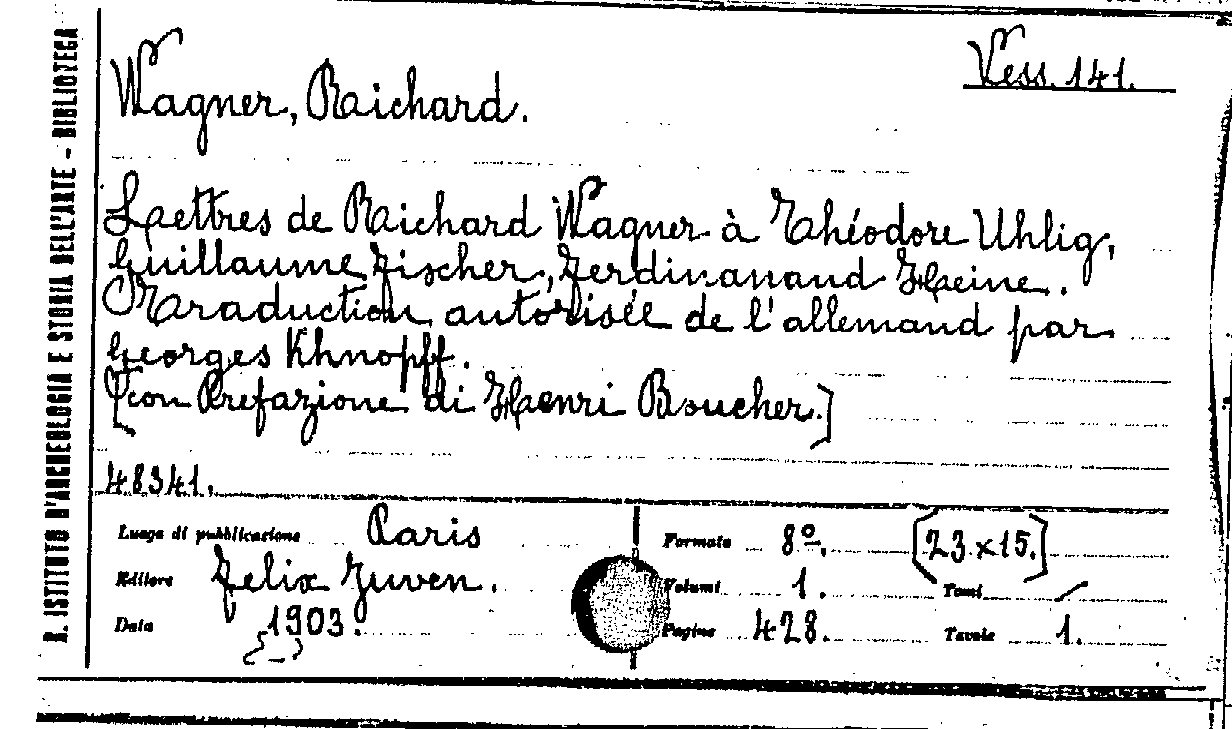 R. ISTITUTO D'ARCHEOLOGIA E STORIA DELL'ARTE - BIBLIOTECA
Vess. 141.
Wagner, Richard.
Lettres de Richard Wagner à Théodore Uhlig,
Guillaume Fischer, Ferdinanand Heine.
Traduction autorisée de l'allemand par
Georges Khnopff.
[con Prefazione di Henri Boucher.]
48341.
Luogo di pubblicazione Paris
Editore Felix Juven.
Data 1903.
Formato 8º. [23x15.]
Volumi 1. Tomi /
Pagine 428. Tavole 1.